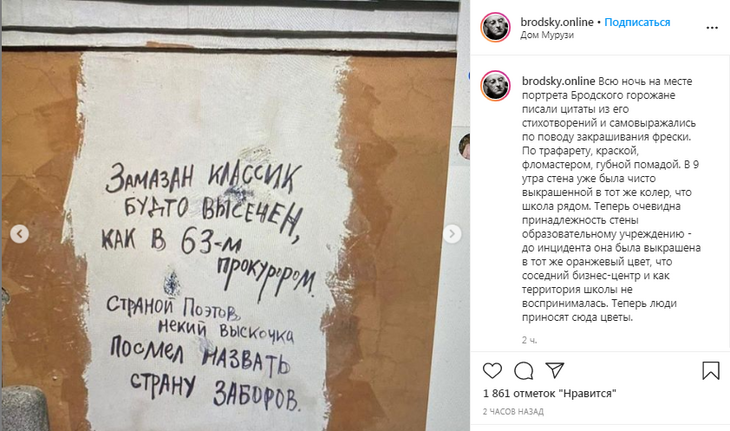 Замазан классик
будто высечен,
как в 63-м
прокурором.
Страной Поэтов
некий выскочка
посмел назвать
страну заборов.
brodsky.online • Подписаться
Дом Мурузи
brodsky.online Всю ночь на месте
портрета Бродского горожане
писали цитаты из его
стихотворений и самовыражались
по поводу закрашивания фрески.
По трафарету, краской,
фломастером, губной помадой. В 9
утра стена уже была чисто
выкрашенной в тот же колер, что
школа рядом. Теперь очевидна
принадлежность стены
образовательному учреждению -
до инцидента она была выкрашена
в тот же оранжевый цвет, что
соседний бизнес-центр и как
территория школы не
воспринималась. Теперь люди
приносят сюда цветы.
2 ч.
1 861 отметок "Нравится"
2 ЧАСОВ НАЗАД